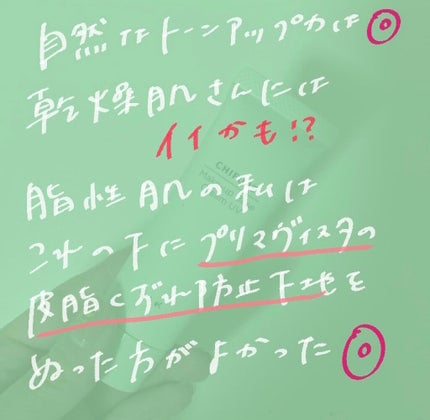 自然なトーンアップ力は◎
乾燥肌さんには
イイかも!?
脂性肌の私は
これの下にプリマヴィスタの
皮脂くずれ防止下地を
ぬった方がよかった◎